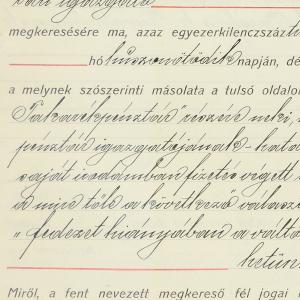 vári igazgató
megkeresésére ma, azaz egyezerkilenczszázt
hó huszonötödik napján, dé
a melynek szószerinti másolata a tulsó oldalo
Takarékpénztár" részére neki,
pénztár igazgatójának - hata
saját irodámban fizetés végett
a mire tőle a következő válasz
„fedezet hiányában a válto
betün
Miről, a fent nevezett megkereső fél jogai